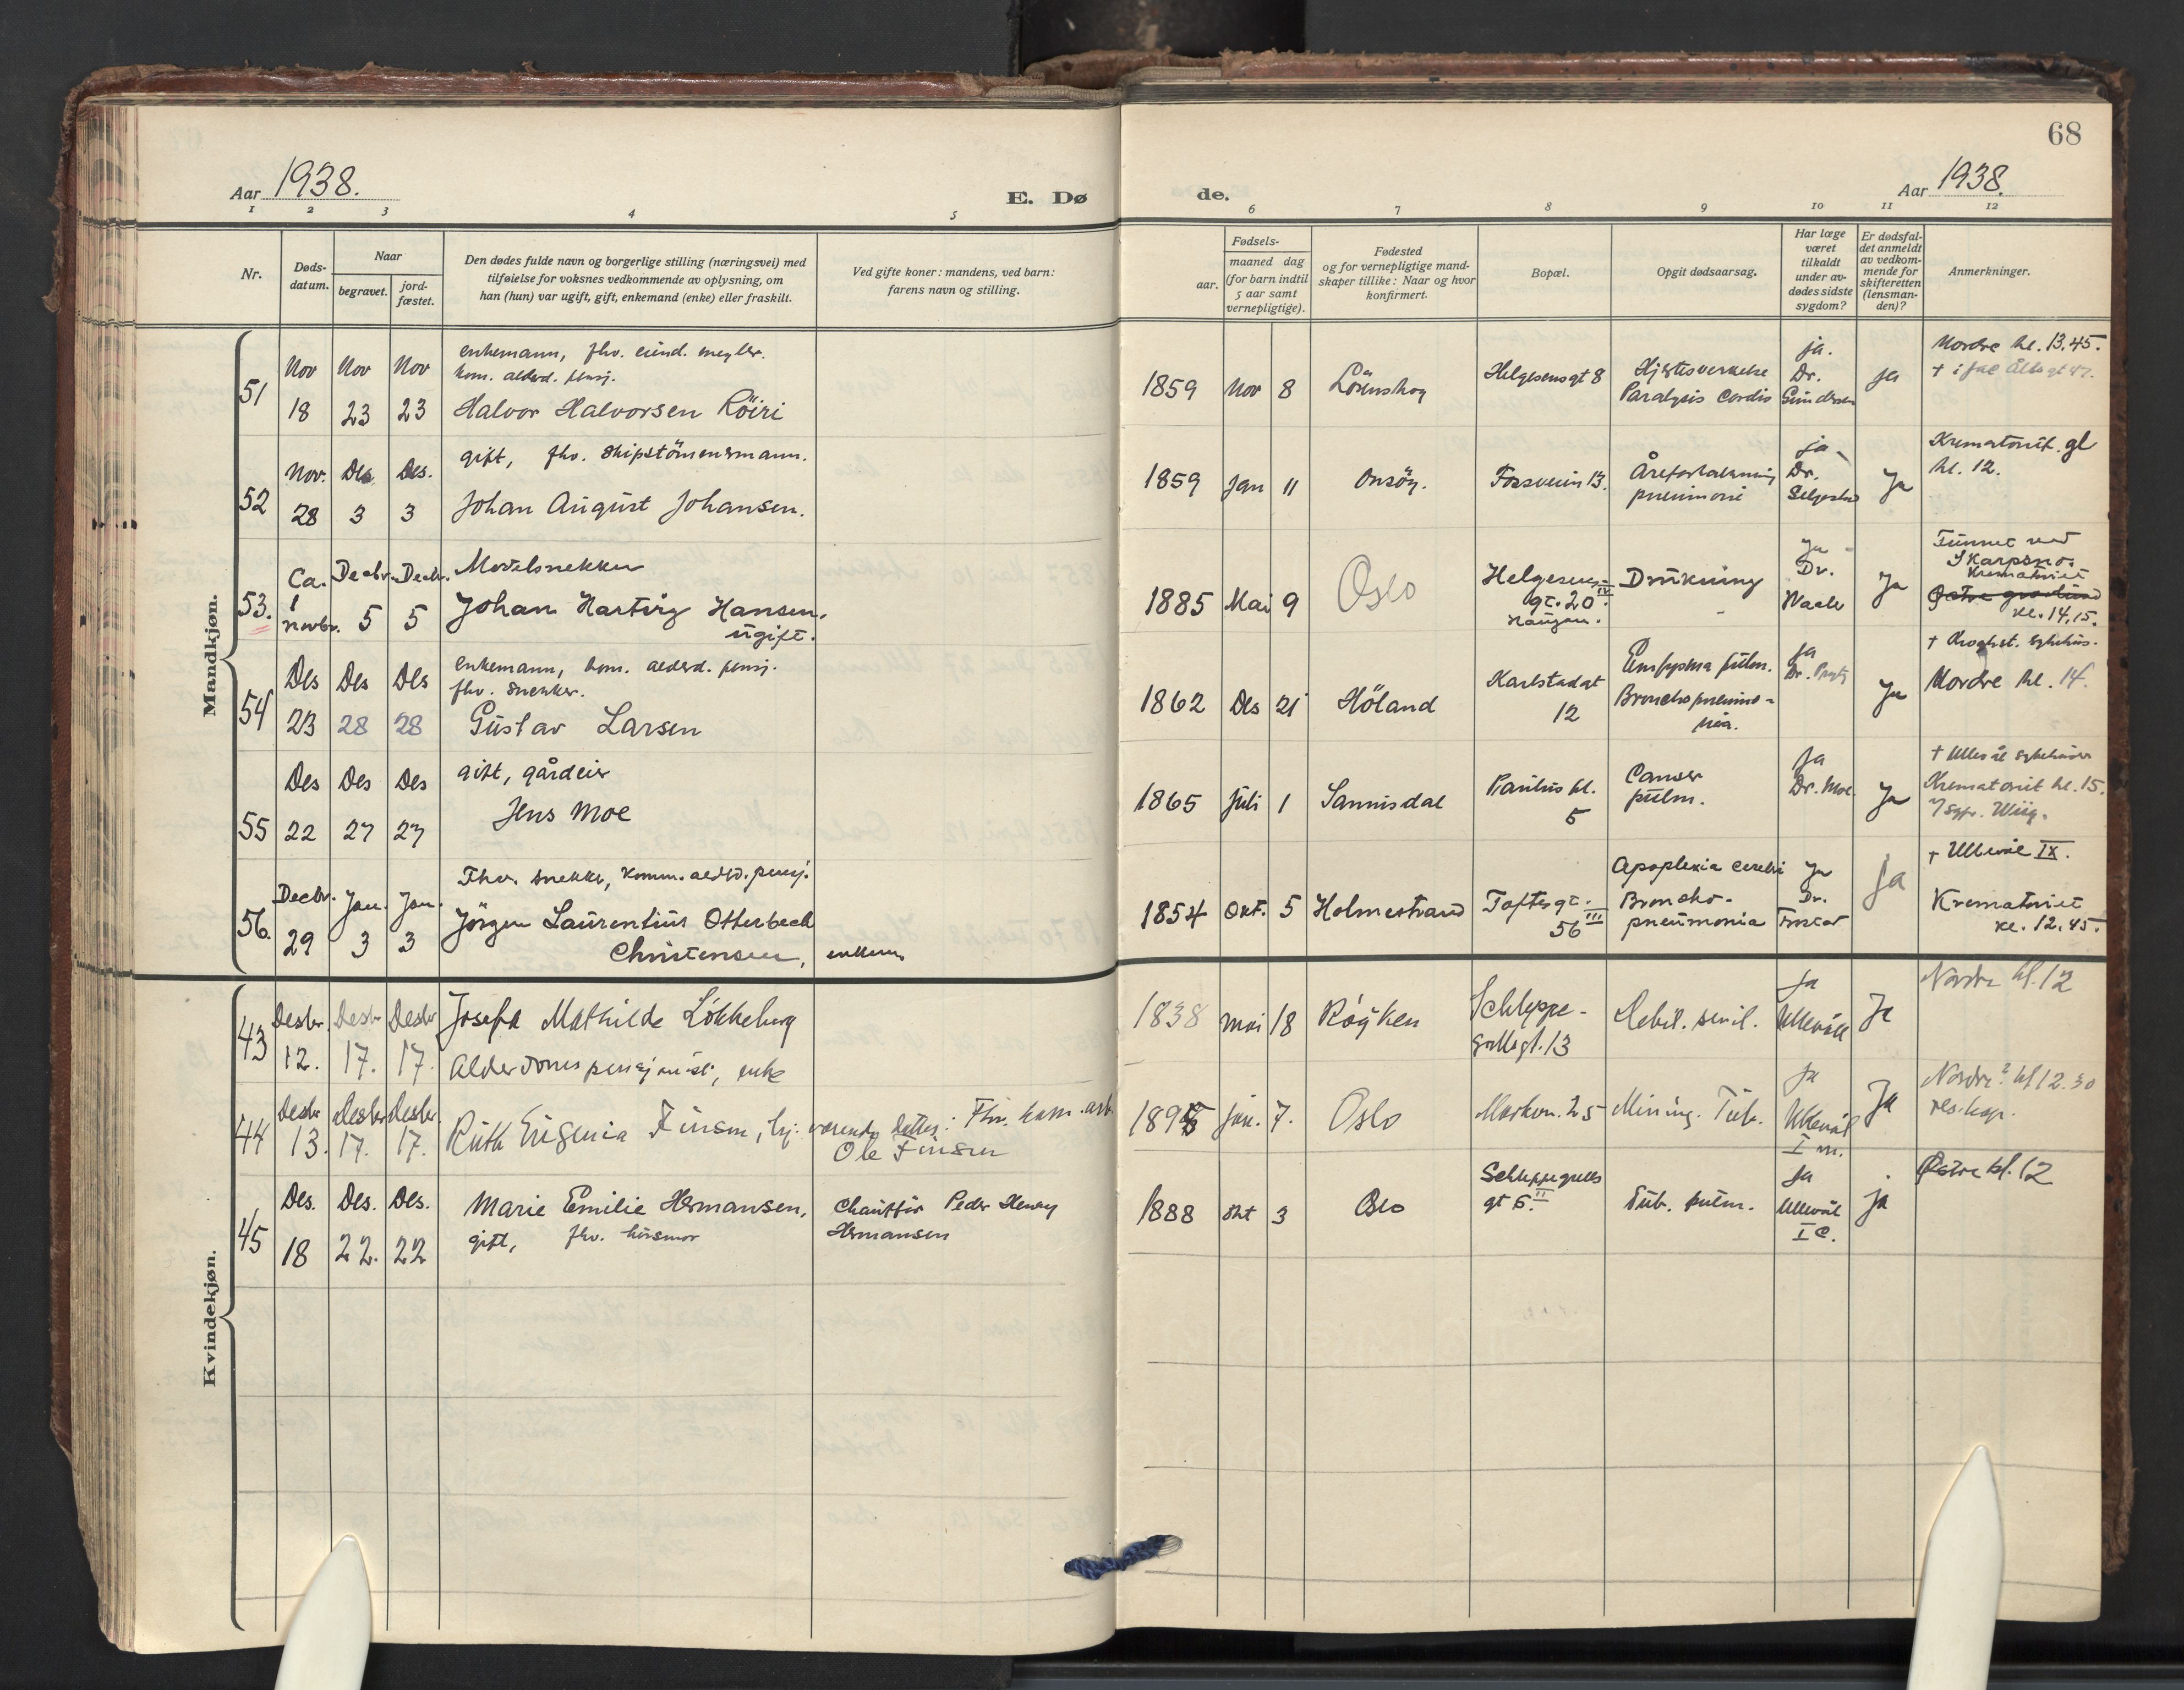 68
Aar 1938.
E. Dø
de.
Aar 1938.
1 2 3 4 5 6 7 8 9 10 11 12
Nr.
Døds-
datum.
Naar
begravet.
jord-
fæstet.
Den dødes fulde navn og borgerlige stilling (næringsvei) med
tilføielse for voksnes vedkommende av oplysning, om
han (hun) var ugift, gift, enkemand (enke) eller fraskilt.
Ved gifte koner: mandens, ved barn:
farens navn og stilling.
Fødsels-
aar.
maaned dag
(for barn indtil
5 aar samt
vernepligtige).
Fødested
og for vernepligtige mand-
skaper tillike: Naar og hvor
konfirmert.
Bopæl.
Opgit dødsaarsag.
Har læge
været
tilkaldt
under av-
dødes sidste
sygdom?
Er dødsfal-
det anmeldt
av vedkom-
mende for
skifteretten
(lensman-
den)?
Anmerkninger.
Mandkjøn.
51
Nov 18
Nov 23
Nov 23
enkemann, fhv. eiend. megler.
kom. alderd. pensj.
Halvor Halvorsen Röiri
1859 Nov 8
Lörenskog
Helgesensgt 8
Hjertesvekkelse
Paralysis Cordis
ja.
Dr.
Gundersen
ja
Nordre kl. 13.45.
52
Nov. 28
Des 3
Des. 3
gift, fhv. skipstömmermann.
Johan August Johansen.
1859 Jan 11
Onsöy.
Fossveien 13.
Åreforkalkning
pneumoni
ja
Dr.
Ja
Krematoriet. gl
kl. 12.
53.
Ca.
1
novbr.
Decbr. 5
Decbr. 5
Modelsnekker
Johan Hartvig Hansen,
ugift.
1885 Mai 9
Oslo
Helgesens
gt. 20 IV
Drukning
Ja
Dr.
Waaler
Ja
Funnet ved
Skarpsno.
Krematoriet
Østre gravlund
kl. 14,15.
54
Des 23
Des 28
Des 28
enkemann, kom. alderd. pensj.
fhv. snekker.
Gustav Larsen
1862 Des 21
Höland
Karlstadgt
12
Emfysema pulm.
Bronchopneumo-
nia.
ja
Dr.
Ja
+ Kroghst. sykehus.
Nordre kl. 14.
55
Des 22
Des 27
Des 27
gift, gårdeier
Jens Moe
1865 Juli 1
Sannidal
Paulus pl.
5
Cancer
pulm.
Ja
Dr. Moe.
Ja
+ Ullevål sykehus
Krematoriet kl. 15.
v/ Sgpr. Wiig.
56.
Decbr. 29
Jan. 3
Jan. 3
Fhv. snekker, komm. alderd. pensj.
Jörgen Laurentius Otterbech
Christensen, enkem.
1854 Okt. 5
Holmestrand
Toftesgt.
56 III
Apoplexia cerebri
Broncho-
pneumonia
Ja
Dr.
Ja
+ Ullevål IX.
Krematoriet
kl. 12,45.
Kvindekjøn.
43
Desbr 12.
Desbr 17.
Desbr 17.
Josefa Mathilde Løkkeberg
Alderdomspensjonist, enke
1838 mai 18
Røyken
Schleppe-
grellsgt. 13
Debil. senil.
Ja
Ullevål
Ja
Nordre kl. 12
44
Desbr 13.
Desbr 17.
Desbr 17.
Ruth Eugenia Finsen, hj. værende datter: Fhv. kom. arb.
Ole Finsen
1895 jan. 7.
Oslo
Markvn. 25
Mining. Tub.
Ja
Ullevål
I m.
Ja
Nordre? kl. 12.30
res. kap.
45
Des. 18
Des. 22.
Des. 22
Marie Emilie Hermansen,
gift, fhv. husmor
Chauffør Peder Henry
Hermansen
1888 Okt 3
Oslo
Schleppegrells
gt 5. II
Tub. pulm.
Ja
Ullevål
I C.
ja
Østre kl. 12